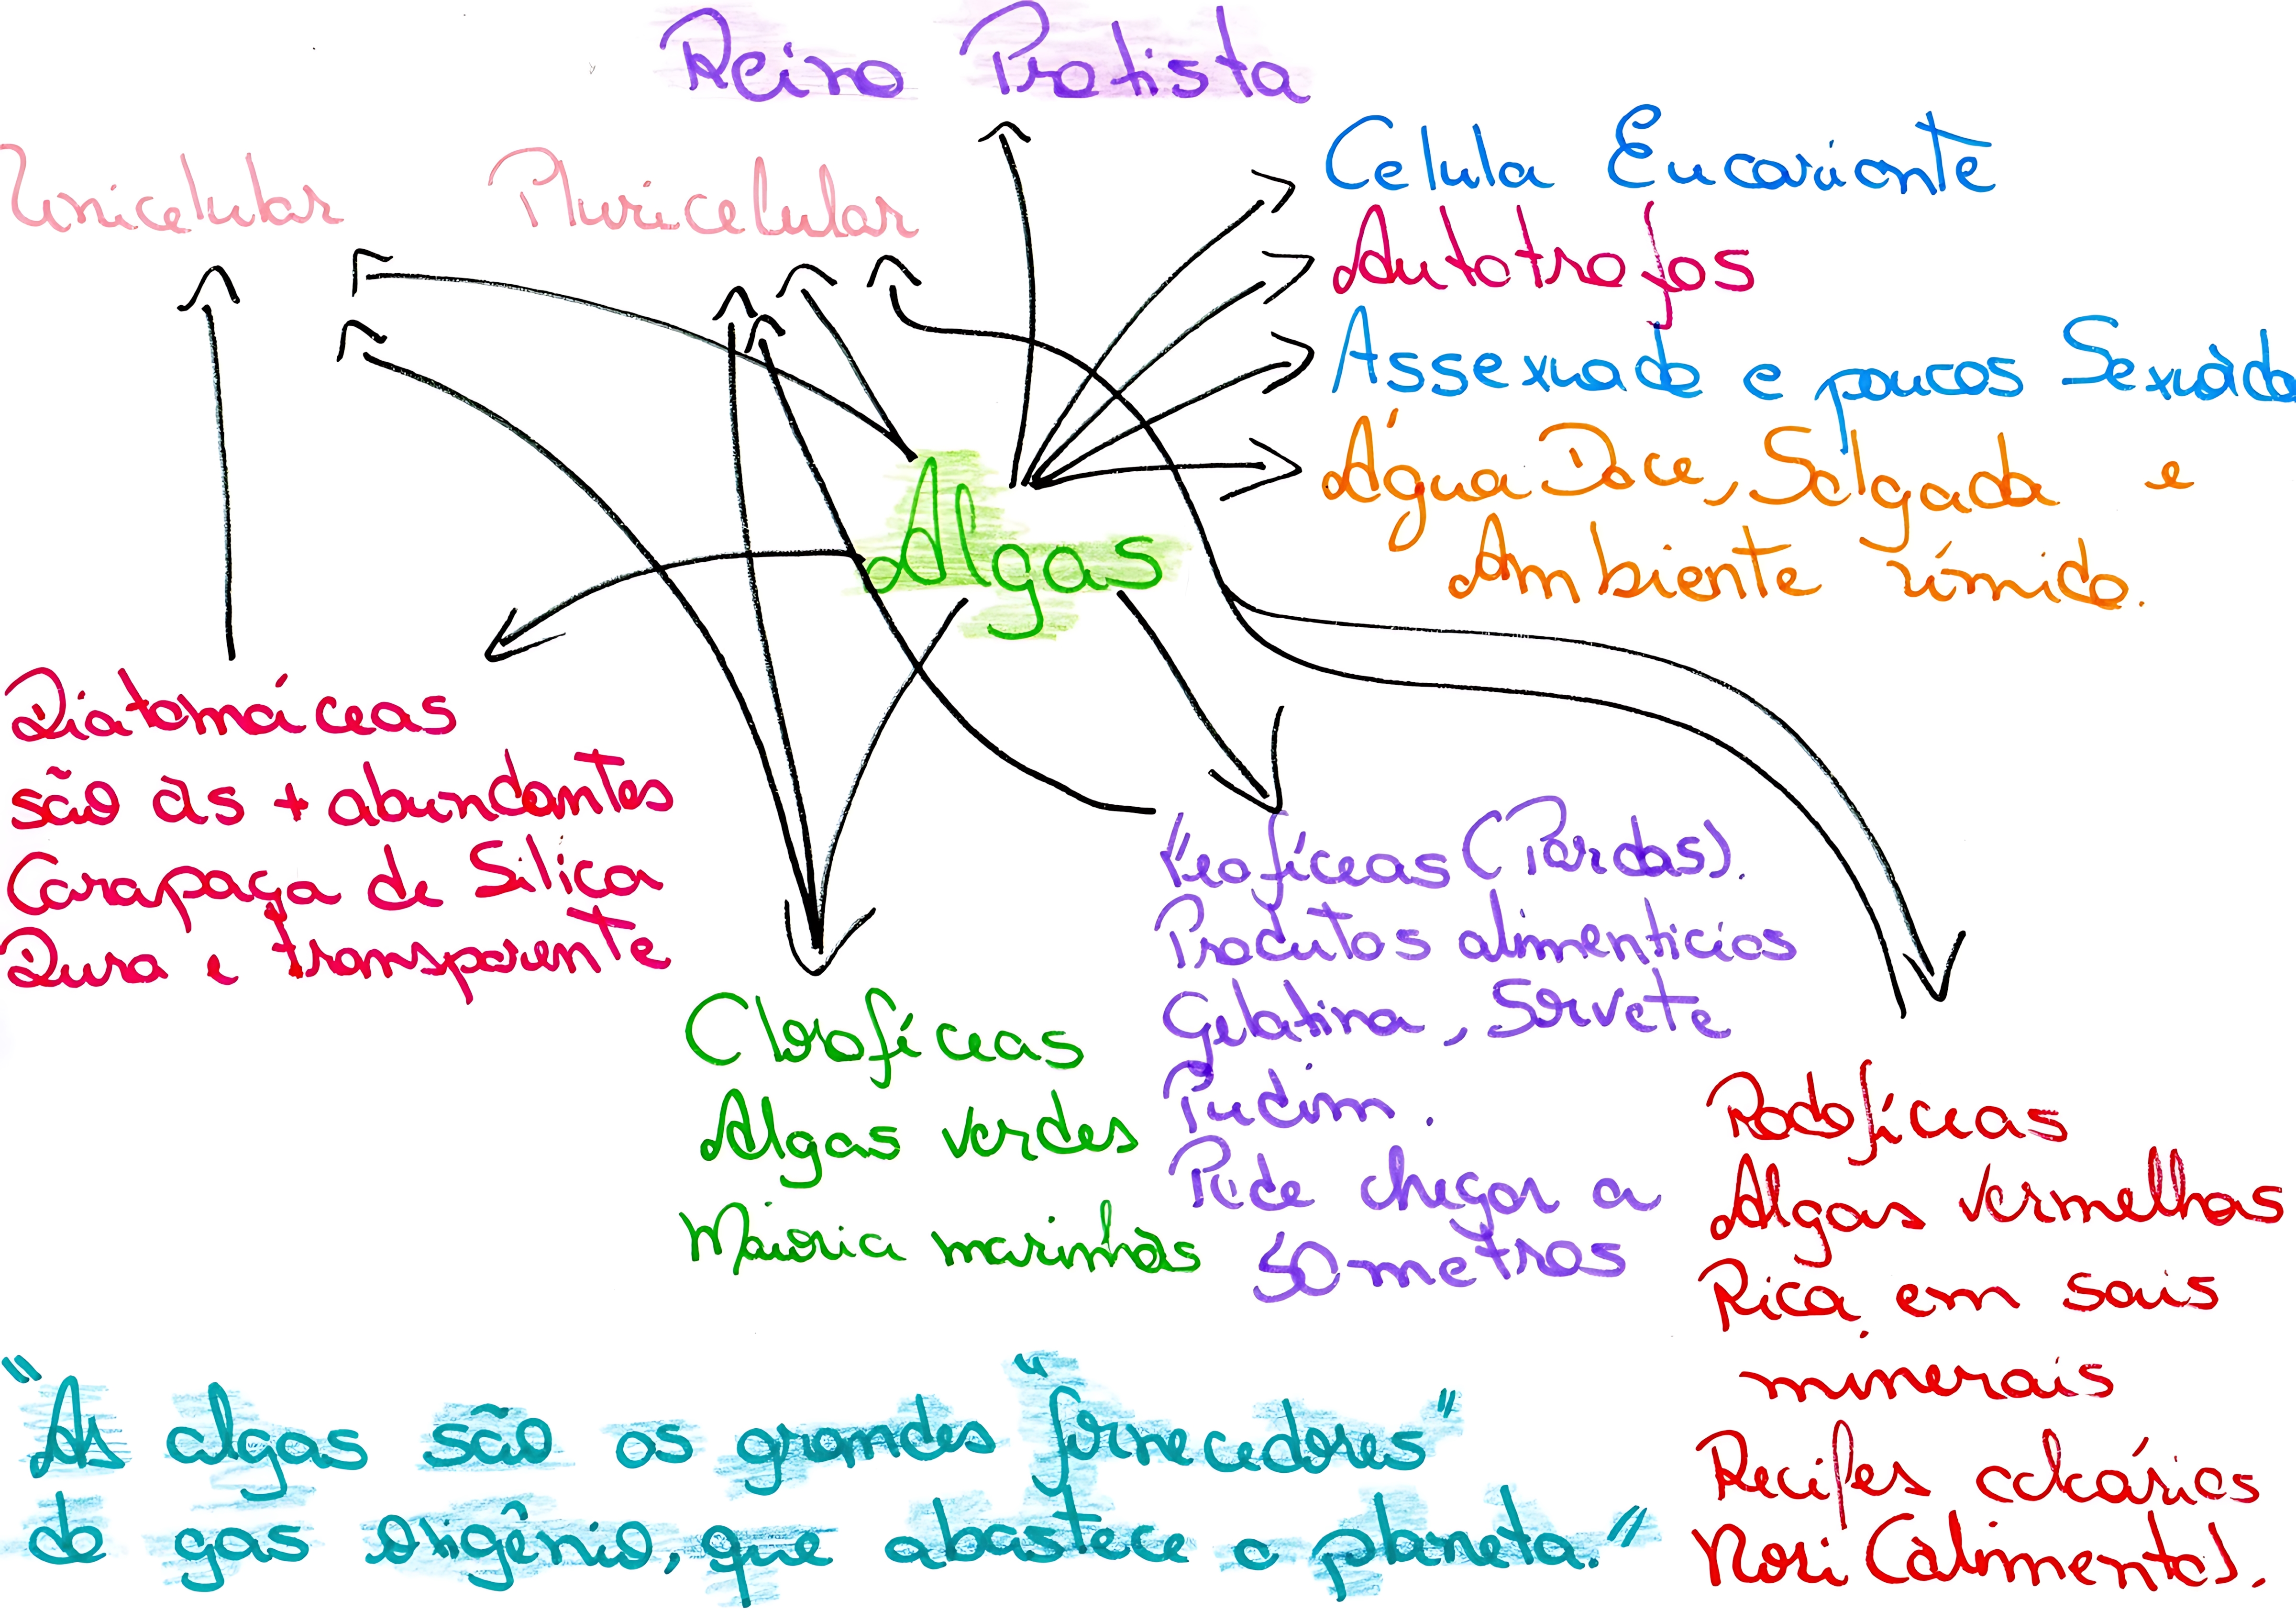 Reino Protista
Unicelular Pluricelular
Celula Eucarionte
Autotrofos
Assexuada e poucos Sexuada
Água Doce, Salgada e
Ambiente úmido.
Algas
Diatomáceas
são às + abundantes
Carapaça de Silica
Dura e transparente
Clorofíceas
Algas verdes
Maioria marinhas
Feofíceas (Pardas).
Produtos alimenticios
Gelatina, Sorvete
Pudim.
Pode chegar a
50 metros
Rodofíceas
Algas vermelhas
Rica em sais
minerais
Recifes calcários
Nori (alimento).
"As algas são os grandes "fornecedores"
do gas oxigênio, que abastece o planeta."